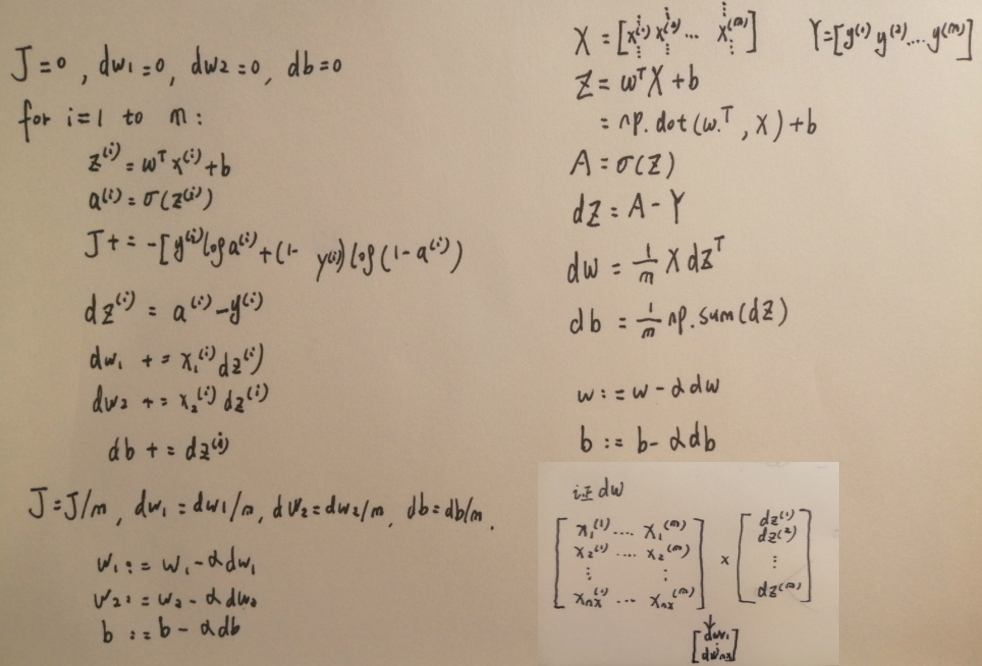 J=0, dw₁=0, dw₂=0, db=0
for i=1 to m:
z⁽ⁱ⁾=wᵀx⁽ⁱ⁾+b
a⁽ⁱ⁾=σ(z⁽ⁱ⁾)
J+=-[y⁽ⁱ⁾loga⁽ⁱ⁾+(1-y⁽ⁱ⁾)log(1-a⁽ⁱ⁾)
dz⁽ⁱ⁾=a⁽ⁱ⁾-y⁽ⁱ⁾
dw₁+=x₁⁽ⁱ⁾dz⁽ⁱ⁾
dw₂+=x₂⁽ⁱ⁾dz⁽ⁱ⁾
db+=dz⁽ⁱ⁾
J=J/m, dw₁=dw₁/m, dw₂=dw₂/m, db=db/m.
w₁:=w₁-αdw₁
w₂:=w₂-αdw₂
b:=b-αdb
X=[x⁽¹⁾x⁽²⁾...x⁽ᵐ⁾] Y=[y⁽¹⁾y⁽²⁾...y⁽ᵐ⁾]
Z=wᵀX+b
=np.dot(w.T,X)+b
A=σ(Z)
dZ=A-Y
dw=1/m Xdzᵀ
db=1/m np.sum(dZ)
w:=w-αdw
b:=b-αdb
证dw
x₁⁽¹⁾....x₁⁽ᵐ⁾ dz⁽¹⁾
x₂⁽¹⁾....x₂⁽ᵐ⁾ × dz⁽²⁾
⋮ ⋮ ⋮
xₙₓ⁽¹⁾...xₙₓ⁽ᵐ⁾ dz⁽ᵐ⁾
↓
dw₁
⋮
dwₙₓ